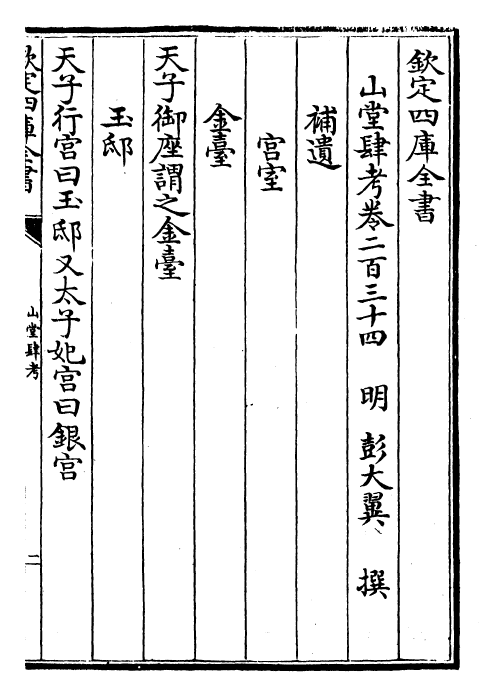 欽定四庫全書
山堂肆考卷二百三十四 明 彭大翼 撰
補遺
宮室
金臺
天子御座謂之金臺
玉邸
天子行宮曰玉邸又太子妃宮曰銀宮
欽定四庫全書
山堂肆考